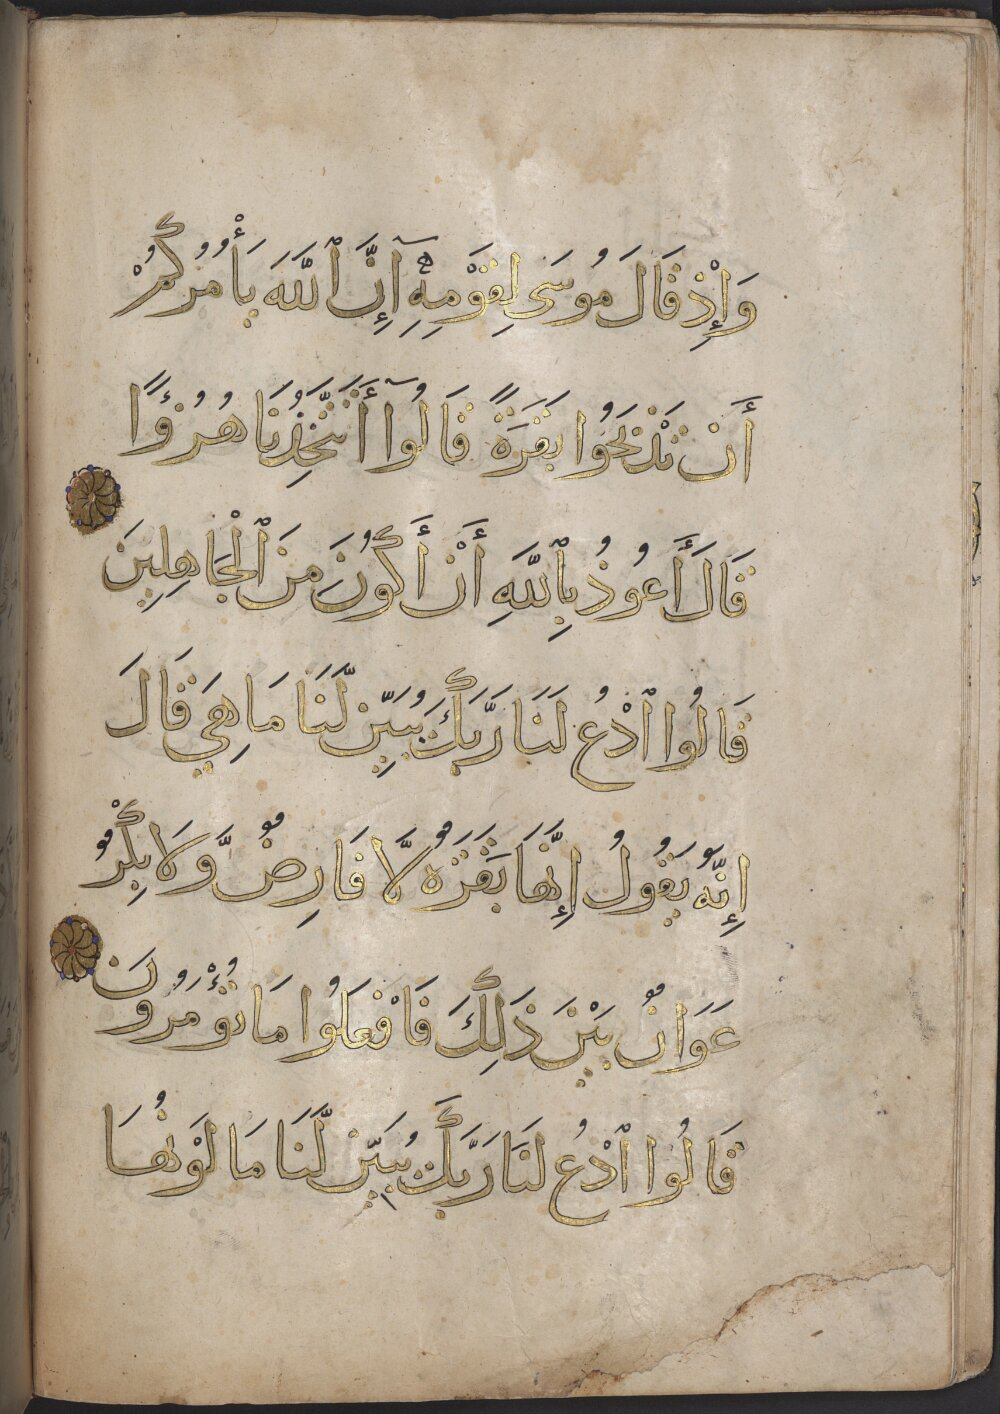 وَإِذْ قَالَ مُوسَى لِقَوْمِهِٓ إِنَّ ٱللَّهَ يَأْمُرُكُمْ
أَن تَذْبَحُوا بَقَرَةً قَالُوٓا أَتَتَّخِذُنَا هُزُؤًا
قَالَ أَعُوذُ بِٱللَّهِ أَنْ أَكُونَ مِنَ ٱلْجَاهِلِينَ
قَالُوا ٱدْعُ لَنَا رَبَّكَ يُبَيِّن لَّنَا مَا هِيَ قَالَ
إِنَّهُ يَقُولُ إِنَّهَا بَقَرَةٌ لَّا فَارِضٌ وَّلَا بِكْرٌ
عَوَانٌ بَيْنَ ذَلِكَ فَافْعَلُوا مَا تُؤْمَرُونَ
قَالُوا ٱدْعُ لَنَا رَبَّكَ يُبَيِّن لَّنَا مَا لَوْنُهَا